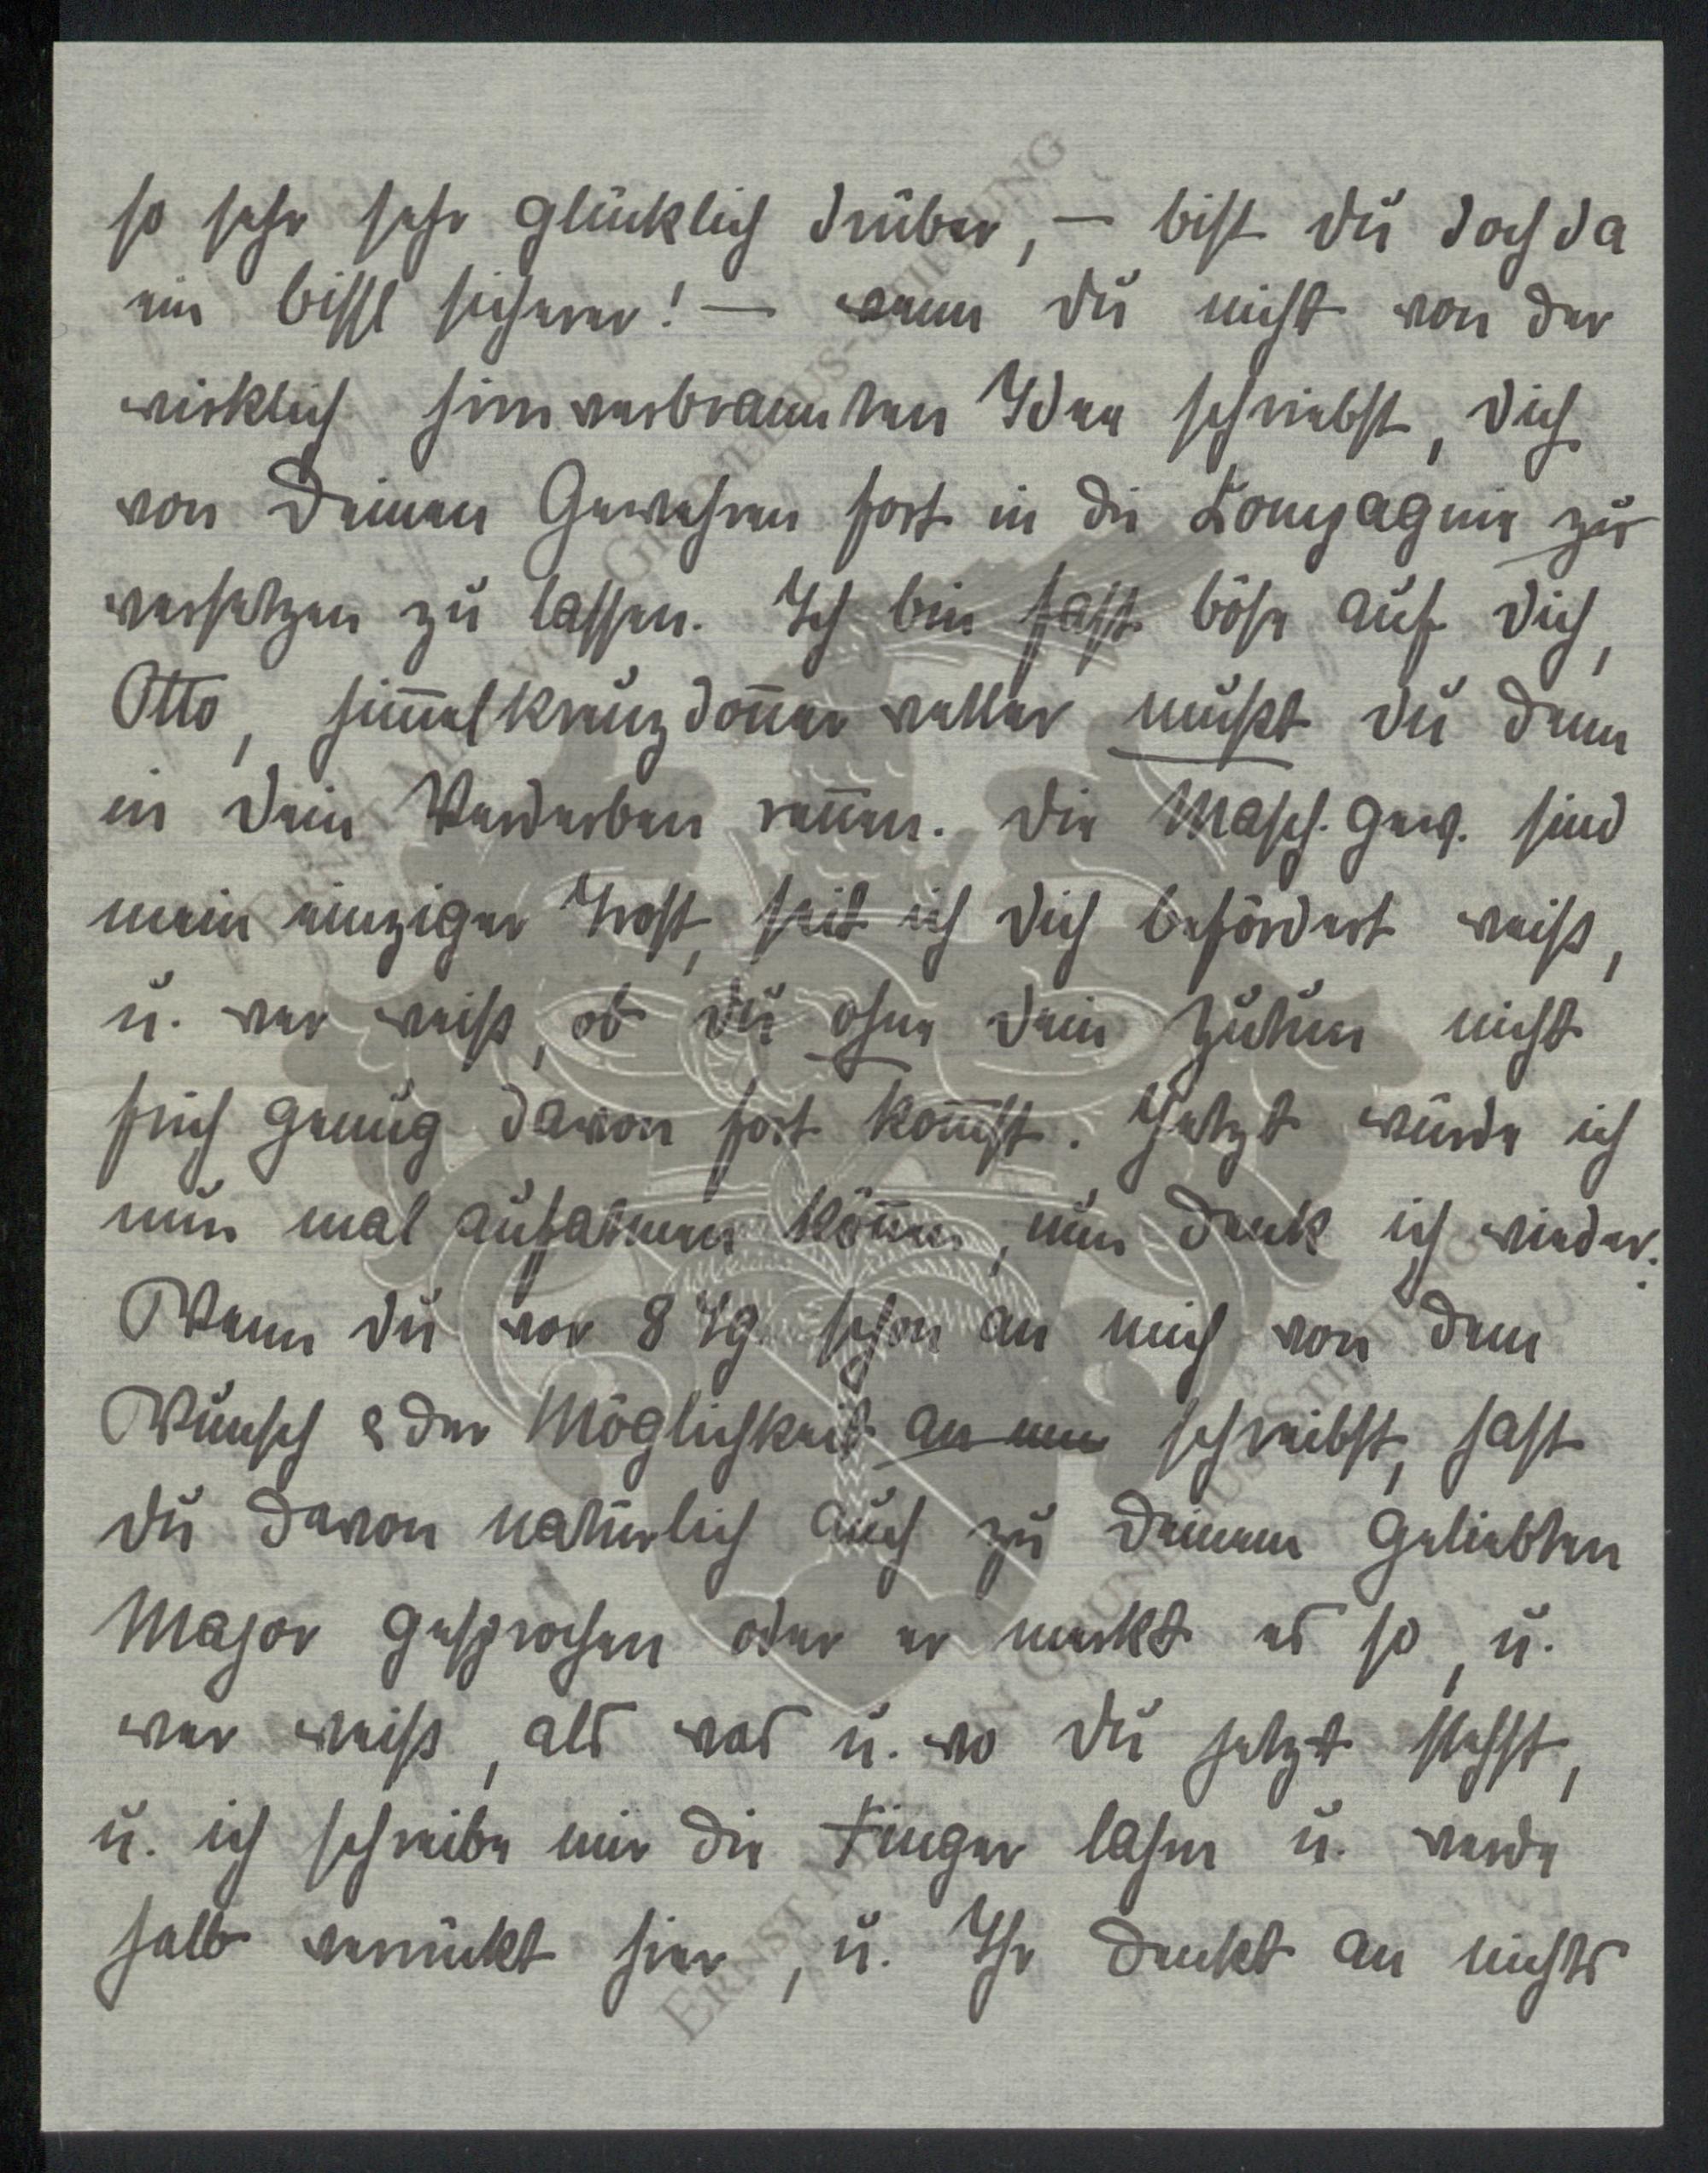 so sehr sehr glücklich drüber, — bist du doch da
ein bissl sicherer! — wenn du nicht von der
wirklich hirnverbrannten Idee schriebst, dich
von Deinen Gewehren fort in die Kompagnie zu
versetzen zu lassen. Ich bin fast böse auf dich,
Otto, him̅elkreuzdon̅erwetter mußt du denn
in dein Verderben ren̅en. Die Masch. gew. sind
mein einziger Trost, seit ich dich befördert weiß,
u. wer weiß, ob du ohne dein Zutun nicht
früh genug davon fort kom̅st. Jetzt würde ich
nun mal aufatmen kön̅en, nun denk ich wieder:
Wenn du vor 8 Tg. schon an mich von dem
Wunsch & der Möglichkeit schreibst, hast
du davon natürlich auch zu deinem geliebten
Major gesprochen oder er merkt es so, u.
wer weiß, als was u. wo du jetzt stehst,
u. ich schreibe mir die Finger lahm u. werde
halb verrückt hier, u. Ihr denkt an nichts
ERNST MAYR VON GRUNELIUS-STIFTUNG